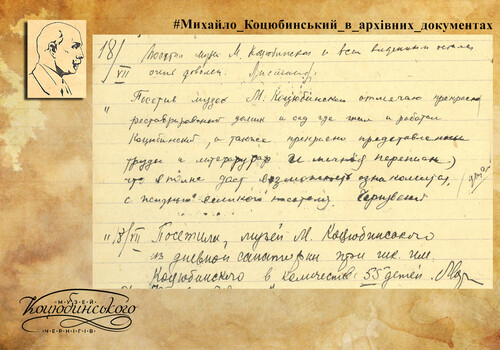 #Михайло_Коцюбинський_в_архівних_документах
18/VII Посетил музей М. Коцюбинского и всем виденным остался
очень доволен.
" Посетив музей М. Коцюбинского отмечаю прекрасно
реставрированный домик и сад где жил и работал
Коцюбинский, а также прекрасно представленные
труды и литературу и личная переписка,
что вполне даст возможность ознакомиться
с жизнью великого писателя.
"18/VII Посетили музей М. Коцюбинського
из дневной санатории при шк. им.
Коцюбинского в количестве 55 детей.
МУЗЕЙ
Коцюбинського
ЧЕРНІГІВ